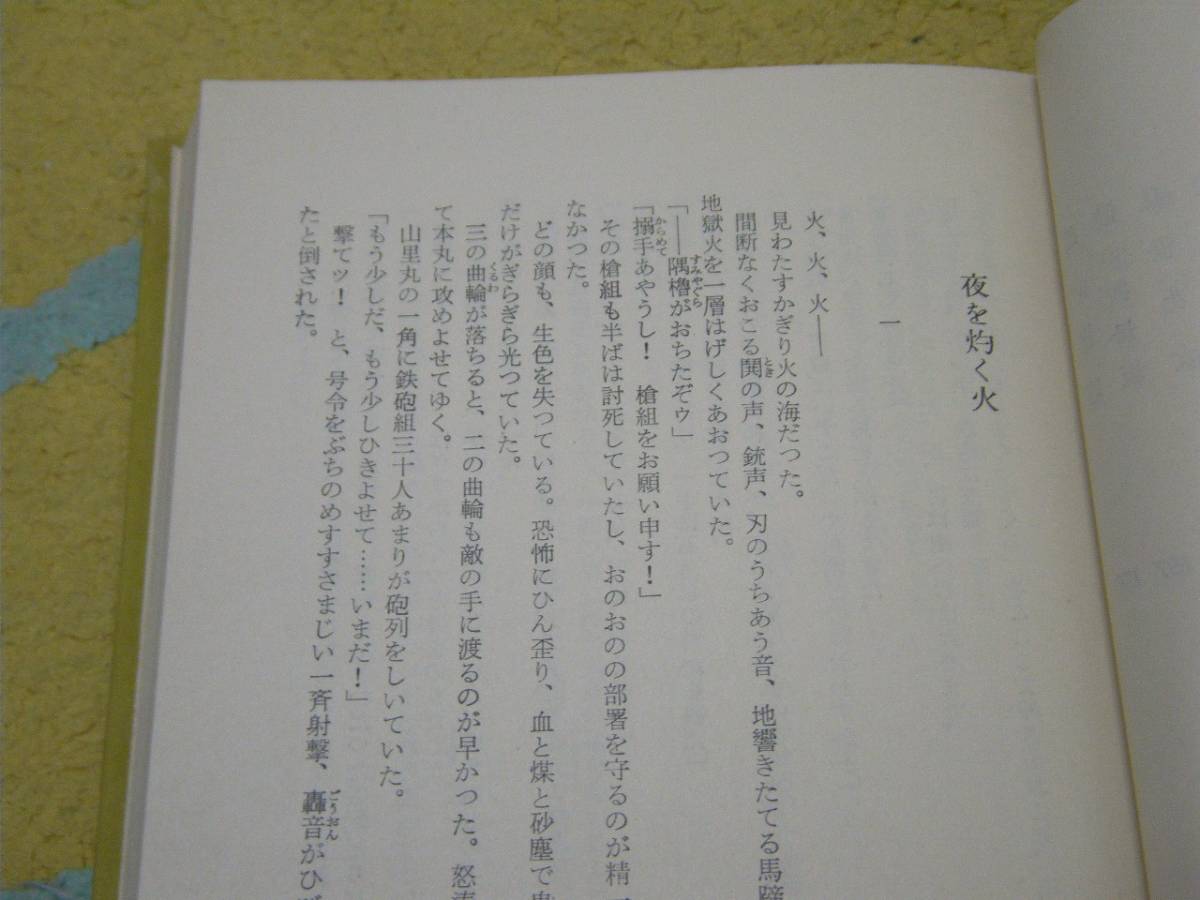 夜を灼く火
一
火、火、火――
見わたすかぎり火の海だった。
間断なくおこる鬨の声、銃声、刃のうちあう音、地響きたてる馬蹄
地獄火を一層はげしくあおつていた。
「――隅櫓がおちたぞゥ」
「搦手あやうし！　槍組をお願い申す！」
その槍組も半ばは討死していたし、おのおのの部署を守るのが精一
なかつた。
どの顔も、生色を失つている。恐怖にひん歪り、血と煤と砂塵で
だけがぎらぎら光つていた。
三の曲輪が落ちると、二の曲輪も敵の手に渡るのが早かつた。怒
て本丸に攻めよせてゆく。
山里丸の一角に鉄砲組三十人あまりが砲列をしいていた。
「もう少しだ、もう少しひきよせて……いまだ！」
撃てッ！　と、号令をぶちのめすすさまじい一斉射撃、轟音がひ
たと倒された。